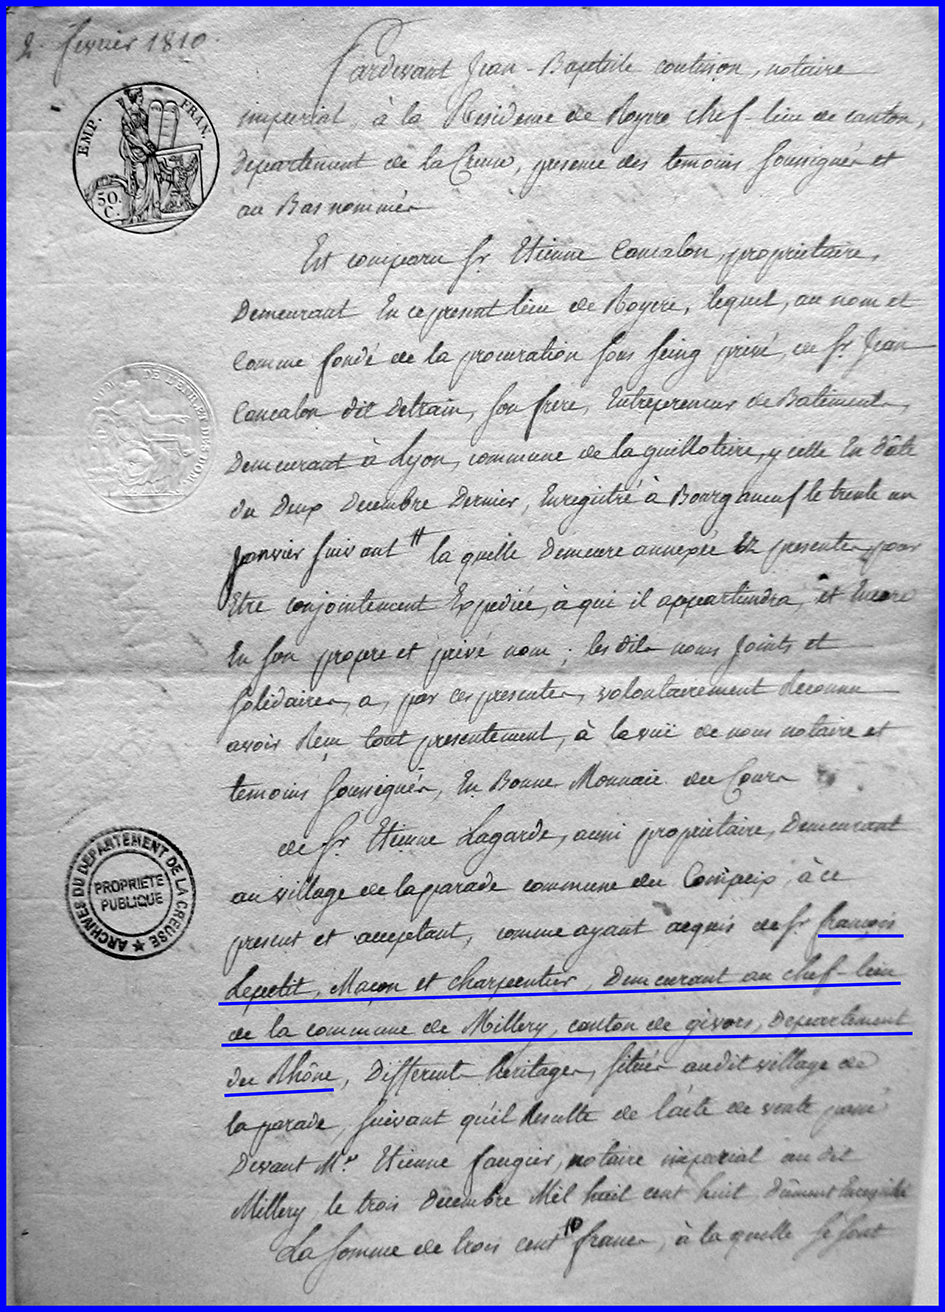 2 février 1810.
EMP. FRAN.
50.
C.
Pardevant Jean-Baptiste coutisson, notaire
imperial, à la Residence de Royere chef-lieu de canton,
Departement de la Creuse, presence des temoins soussignés et
au Bas nommés
Est comparu Sr. Etienne Cancalon, propriétaire,
Demeurant En ce present lieu de Royere, lequel, au nom et
Comme fondé de la procuration sous seing privé, de Sr. Jean
Cancalon dit Detrain, son frere, Entrepreneur de Batiments,
Demeurant à Lyon, commune de la guillotiere, y celle En dâte
du Deux Decembre Dernier, Enregistré à Bourganeuf le trente un
Janvier suivant la quelle Demeure annexée presentes pour
Etre conjointement Expediée, à qui il appartiendra, et Encore
En son propre et privé nom ; les dits noms Joints et
Solidaires, a, par ces presentes, volontairement Reconnu
avoir Reçu tout presentement, à la vuë de nous notaire et
temoins soussignés, En Bonne Monnaie du Cours
de Sr. Etienne Lagarde, aussi propriétaire, Demeurant
au village de la parade commune du Compeix, à ce
present et acceptant, comme ayant acquis de Sr. françois
Lepetit, Maçon et charpentier, Demeurant au chef-lieu
de la commune de Millery, canton de givors, Departement
du Rhône, Différents héritages, situés audit village de
la parade, suivant qu'il Resulte de l'acte de vente passé
Devant Me. Etienne faugier, notaire impérial au dit
Millery, le trois Décembre Mil huit cent huit, Dûment Enregistré
La somme de trois cent francs, à la quelle se sont
ARCHIVES DU DEPARTEMENT DE LA CREUSE
PROPRIETE
PUBLIQUE